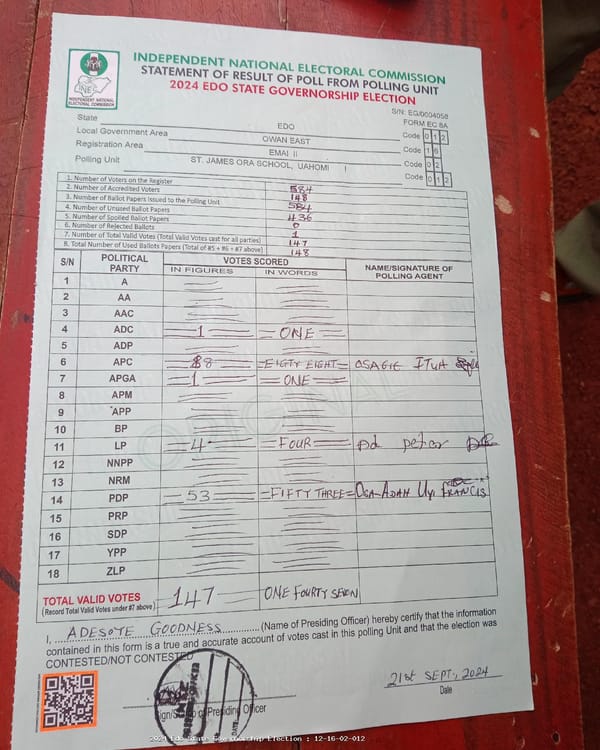 INDEPENDENT NATIONAL ELECTORAL COMMISSION
STATEMENT OF RESULT OF POLL FROM POLLING UNIT
2024 EDO STATE GOVERNORSHIP ELECTION
INEC
INDEPENDENT NATIONAL ELECTORAL COMMISSION
S/N: EG/0004058
FORM EC 8A
State EDO Code 0 1 2
Local Government Area OWAN EAST Code 1 6
Registration Area EMAI II Code 0 2
Polling Unit ST. JAMES ORA SCHOOL, UAHOMI I Code 0 1 2
1. Number of Voters on the Register 584
2. Number of Accredited Voters 148
3. Number of Ballot Papers Issued to the Polling Unit 584
4. Number of Unused Ballot Papers 436
5. Number of Spoiled Ballot Papers 0
6. Number of Rejected Ballots 1
7. Number of Total Valid Votes (Total Valid Votes cast for all parties) 147
8. Total Number of Used Ballots Papers (Total of #5 + #6 + #7 above) 148
S/N POLITICAL PARTY VOTES SCORED NAME/SIGNATURE OF POLLING AGENT
IN FIGURES IN WORDS
1 A
2 AA
3 AAC
4 ADC 1 ONE
5 ADP
6 APC 88 EIGTY EIGHT OSAGIE ITUA
7 APGA 1 ONE
8 APM
9 APP
10 BP
11 LP 4 FOUR peter
12 NNPP
13 NRM
14 PDP 53 FIFTY THREE OGA-ADAH UYI FRANCIS
15 PRP
16 SDP
17 YPP
18 ZLP
ORIGINAL
TOTAL VALID VOTES 147 ONE FOURTY SEVEN
(Record Total Valid Votes under #7 above)
I, ADESOTE GOODNESS (Name of Presiding Officer) hereby certify that the information
contained in this form is a true and accurate account of votes cast in this polling Unit and that the election was
CONTESTED/NOT CONTESTED
21st SEPT., 2024
Sign/Stamp of Presiding Officer
Date
2024 Edo State Governorship Election : 12-16-02-012